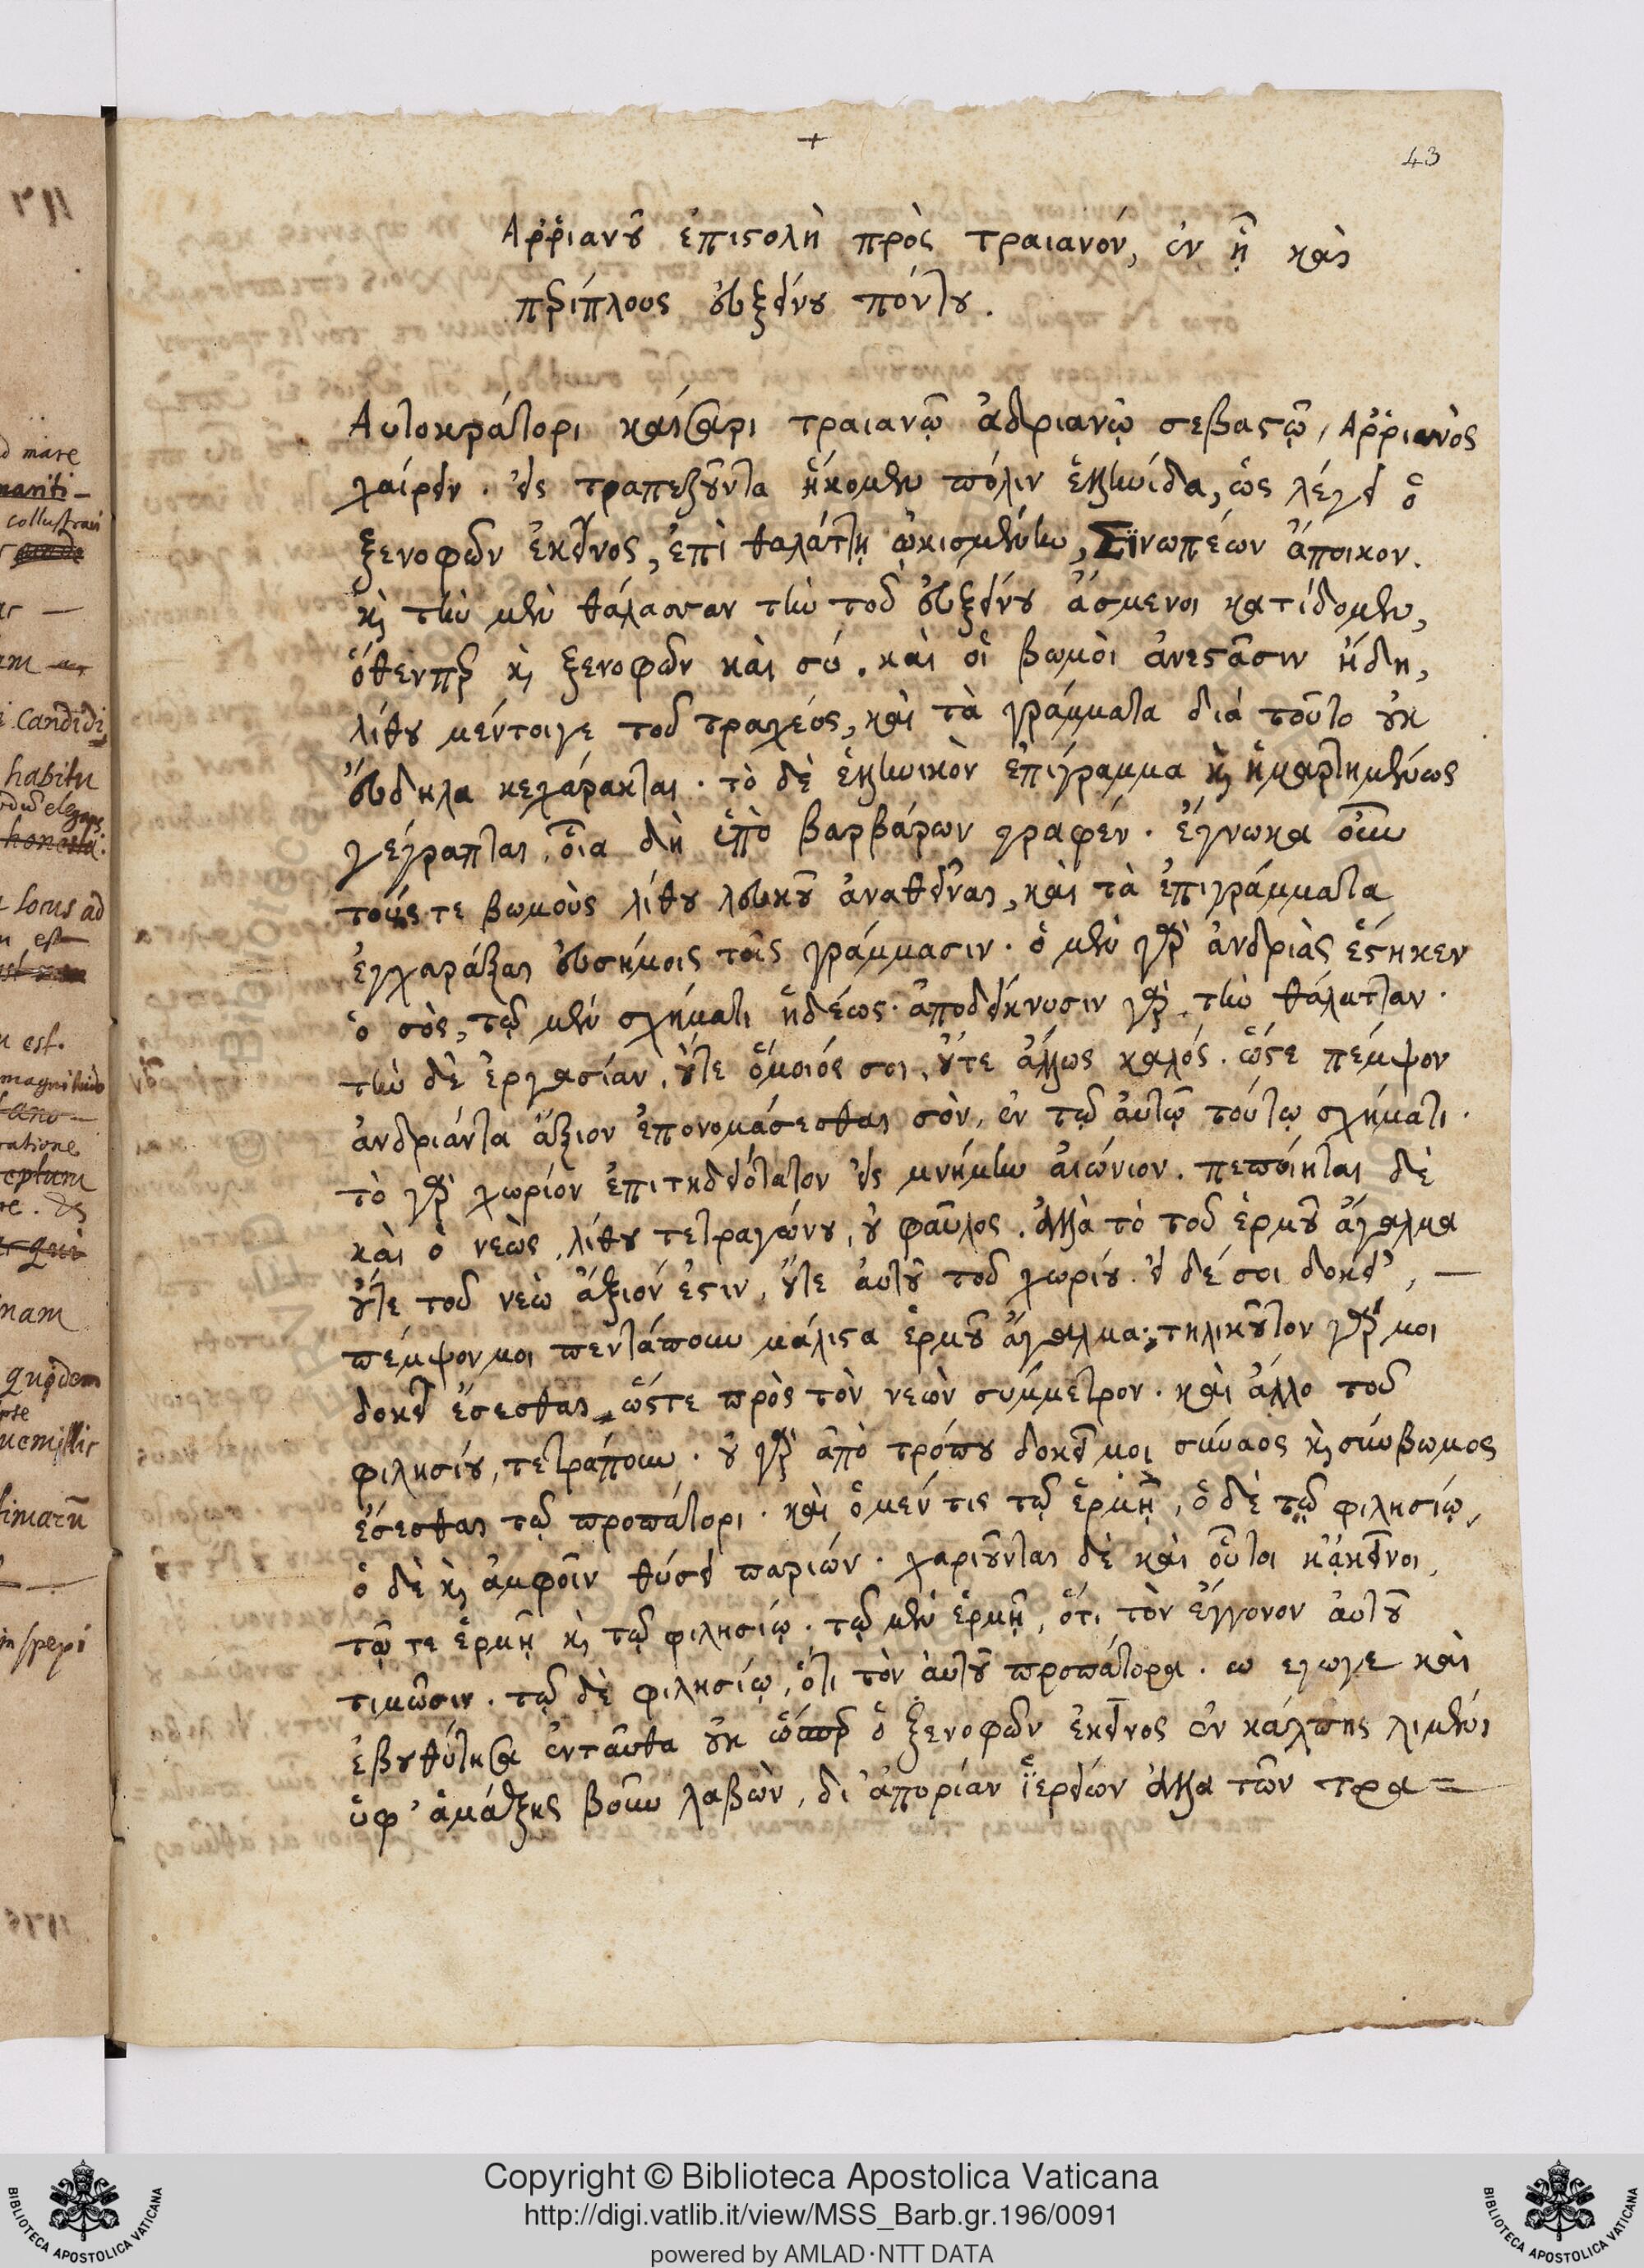 +
43
Ἀῤῥιανοῦ ἐπιστολὴ πρὸς τραιανόν, ἐν ᾗ καὶ
περίπλους εὐξείνου πόντου.
Αὐτοκράτορι καίσαρι τραιανῷ ἀδριανῷ σεβαστῷ, Ἀῤῥιανὸς
χαίρειν. εἰς τραπεζοῦντα ἥκομεν πόλιν ἑλληνίδα, ὡς λέγει ὁ
ξενοφῶν ἐκεῖνος, ἐπὶ θαλάττῃ ᾠκισμένην, Σϊνωπέων ἄποικον.
κ τὴν μὲν θάλασσαν τὴν τοῦ εὐξείνου ἄσμενοι κατίδομεν,
ὅθενπερ κ ξενοφῶν καὶ σύ. καὶ οἱ βωμοὶ ἀνεστᾶσιν ἤδη,
λίθου μέντοιγε τοῦ τραχέος, καὶ τὰ γράμματα διά τοῦτο οὐκ
εὔδηλα κεχάρακται. τὸ δὲ ἑλληνικὸν ἐπίγραμμα κ ἡμαρτημένως
γέγραπται, οἷα δὴ ὑπὸ βαρβάρων γραφέν. ἔγνωκα οὖν
τούς τε βωμοὺς λίθου λευκοῦ ἀναθεῖναι, καὶ τὰ ἐπιγράμματα
ἐγχαράξαι εὐσήμοις τοῖς γράμμασιν. ὁ μὲν γὰρ ἀνδριὰς ἕστηκεν
ὁ σὸς, τῷ μὲν σχήματι ἡδέως. ἀποδείκνυσιν γὰρ τὴν θάλατταν.
τὴν δὲ ἐργασίαν, οὔτε ὅμοιός σοι, οὔτε ἄλλως καλός. ὥστε πέμψον
ἀνδριάντα ἄξιον ἐπονομάσεσθαι σὸν, ἐν τῷ αὐτῷ τούτῳ σχήματι.
τὸ γὰρ χωρίον ἐπιτηδειότατον εἰς μνήμην αἰώνιον. πεποίηται δὲ
καὶ ὁ νεὼς, λίθου τετραγώνου, οὐ φαῦλος. ἀλλὰ τὸ τοῦ ἑρμοῦ ἄγαλμα
οὔτε τοῦ νεὼ ἄξιόν ἐστιν, οὔτε αὐτοῦ τοῦ χωρίου. εἰ δέ σοι δοκεῖ, —
πέμψον μοι πεντάπουν μάλιστα ἑρμοῦ ἄγαλμα; τηλικοῦτον γάρ μοι
δοκεῖ ἔσεσθαι, ὥστε πρὸς τὸν νεὼν σύμμετρον. καὶ ἄλλο τοῦ
φιλησίου, τετράπουν. οὐ γὰρ ἀπὸ τρόπου δοκεῖ μοι σύνναος κ σύνβωμος
ἔσεσθαι τῷ προπάτορι. καὶ ὁ μέν τις τῷ ἑρμῇ, ὁ δὲ τῷ φιλησίῳ,
ὁ δὲ κ ἀμφοῖν θύσει παριών. χαριοῦνται δὲ καὶ οὗτοι κἀκεῖνοι,
τῷ τε ἑρμῇ κ τῷ φιλησίῳ. τῷ μὲν ἑρμῇ, ὅτι τὸν ἔγγονον αὐτοῦ
τιμῶσιν. τῷ δὲ φιλησίῳ, ὅτι τὸν αὑτοῦ προπάτορα. ω εγωγε καὶ
ἐβουθύτησα ἐνταῦθα οὐκ ὥσπερ ὁ ξενοφῶν ἐκεῖνος ἐν κάλπης λιμένι
ὑφ' ἁμάξης βοῦν λαβὼν, δι' ἀπορίαν ἱερείων ἀλλα τῶν τρα=
Copyright © Biblioteca Apostolica Vaticana
http://digi.vatlib.it/view/MSS_Barb.gr.196/0091
powered by AMLAD·NTT DATA